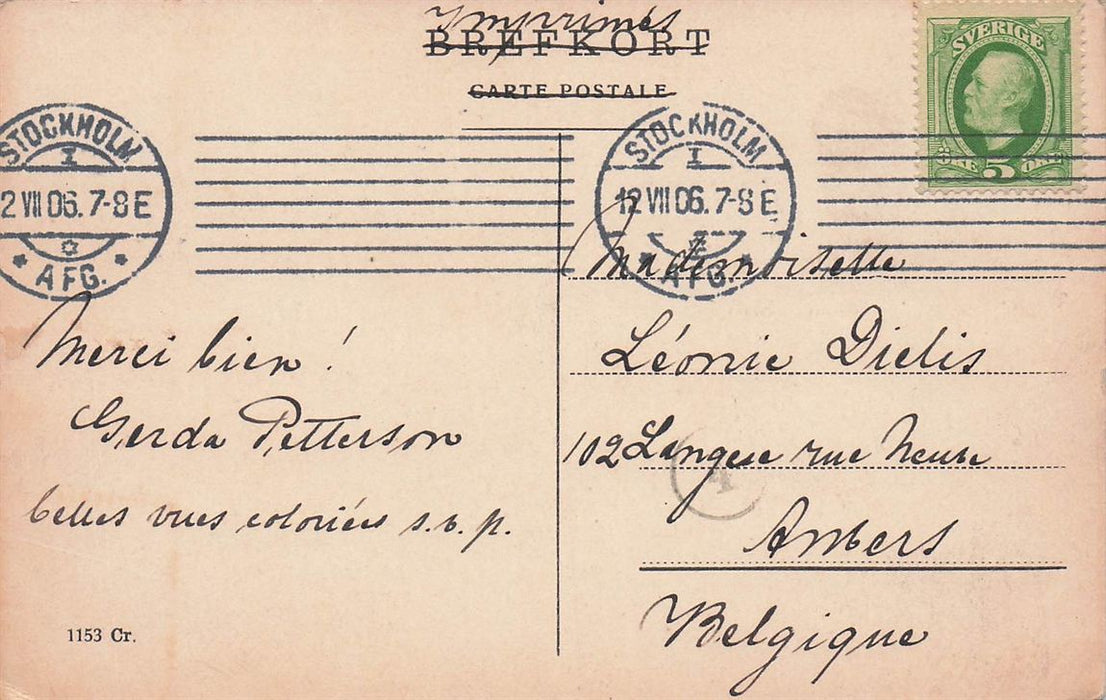 Imprimés
BREFKORT
CARTE POSTALE
SVERIGE
ÖRE 5 ÖRE
STOCKHOLM
I
2 VII 06. 7-8 E
AFG.
STOCKHOLM
I
12 VII 06. 7-8 E
AFG.
Mademoiselle
Léonie Dielis
102 Langue rue Neuve
Anvers
Belgique
Merci bien!
Gerda Petterson
belles vues coloriées s.v.p.
1153 Cr.